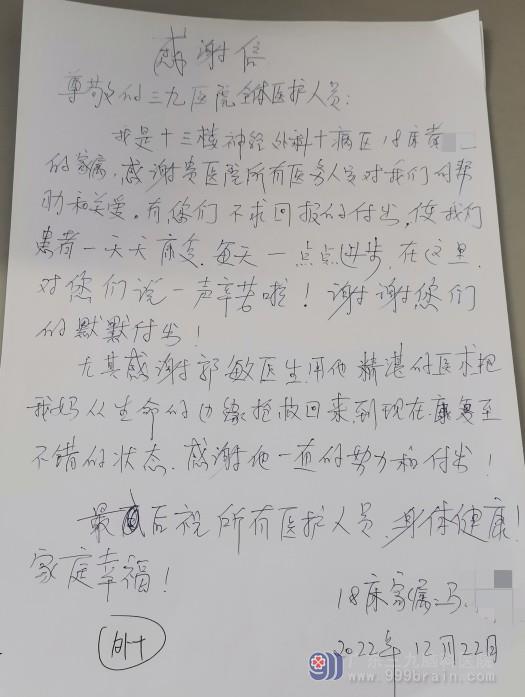 感谢信
尊敬的三九医院全体医护人员：
我是十三楼神经外科十病区18床黄
的家属，感谢贵医院所有医务人员对我们的帮
助和关爱。有您们不求回报的付出，使我们
患者一天天康复，每天一点点进步，在这里，
对您们说一声辛苦啦！谢谢您们
的默默付出！
尤其感谢郭敏医生，用他精湛的医术把
我妈从生命的边缘抢救回来到现在康复至
不错的状态，感谢他一直的努力和付出！
最后祝所有医护人员，身体健康！
家庭幸福！
18床家属：冯
外十
2022年12月22日
广东三九脑科医院
www.999brain.com